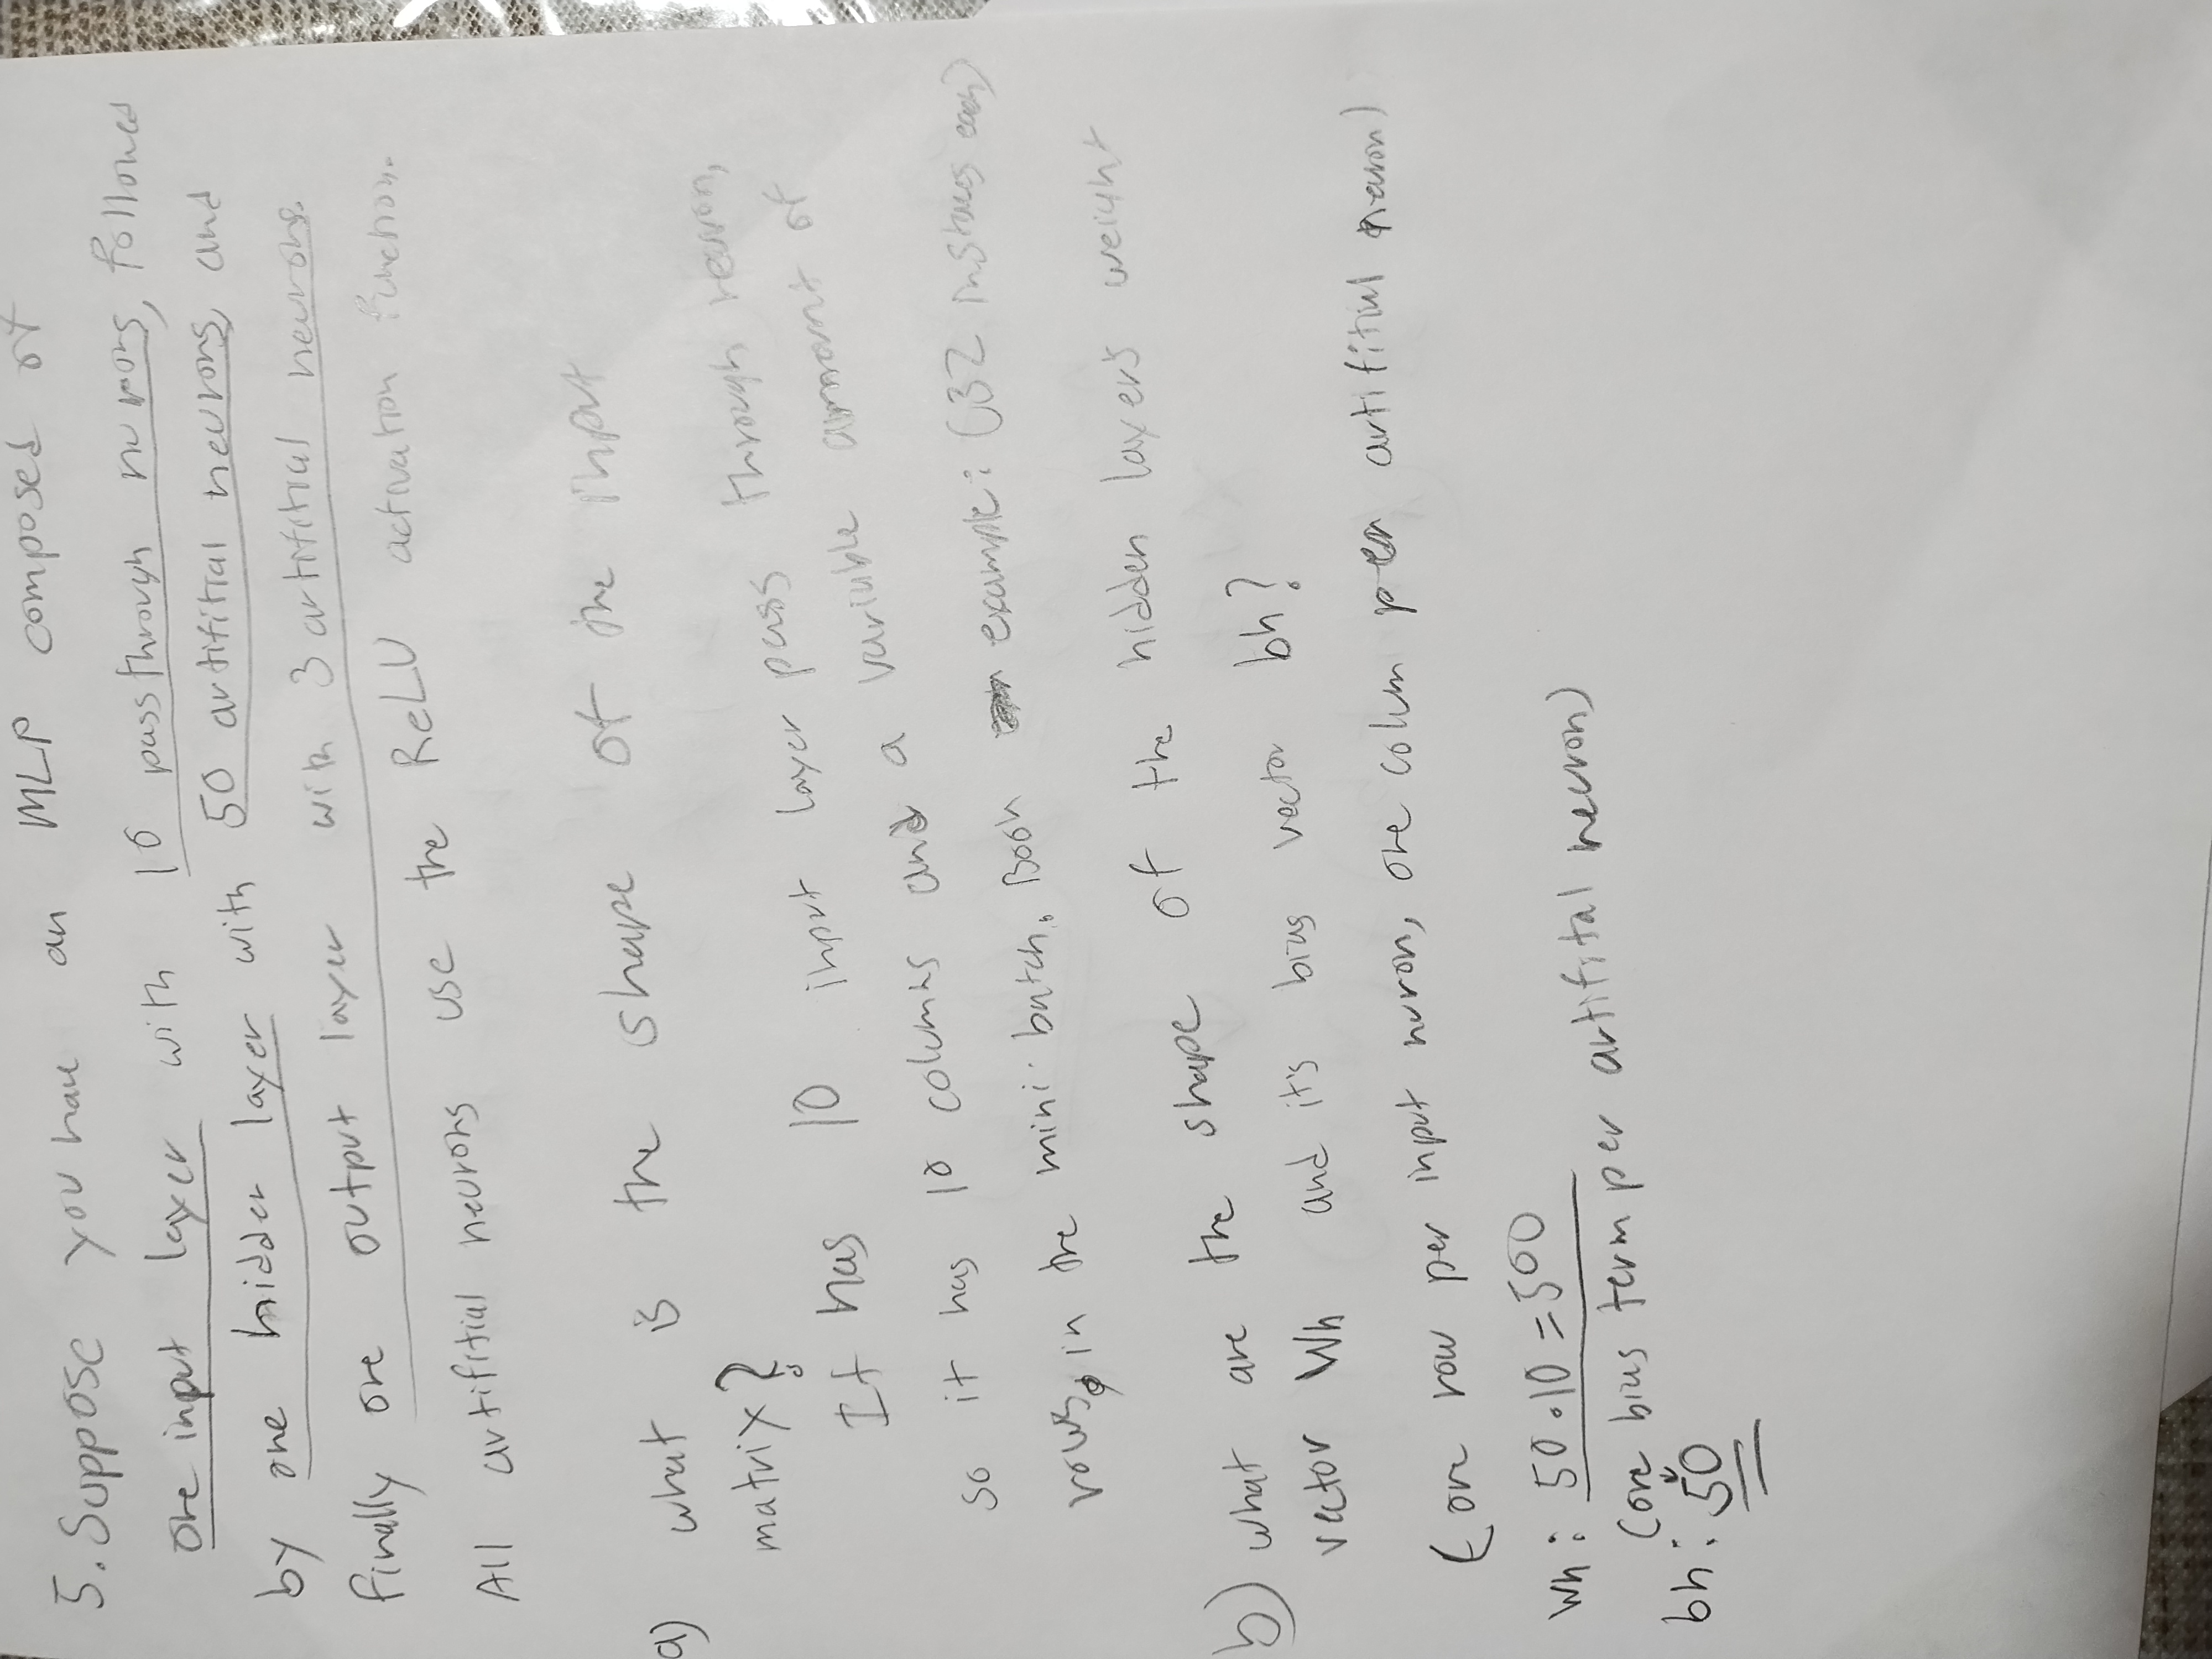 5. Suppose you have an MLP composed of
one input layer with 10 passthrough nurons, followed
by one hidden layer with 50 artifitial neurons, and
finally one output layer with 3 artifitial neurons.
All artifitial neurons use the ReLU activation function.
a) what is the shape of the input
matrix?
It has 10 input layer pass through neuron,
so it has 10 columns and a variable ammount of
rows, in the mini batch. Book example: (32 instaces each)
b) what are the shape of the hidden layer's weight
vector Wh and it's bias vector bh?
(one row per input nuron, one colum per artifitial neuron)
Wh: 50·10=500
(one bias term per artifital neuron)
bh: 50